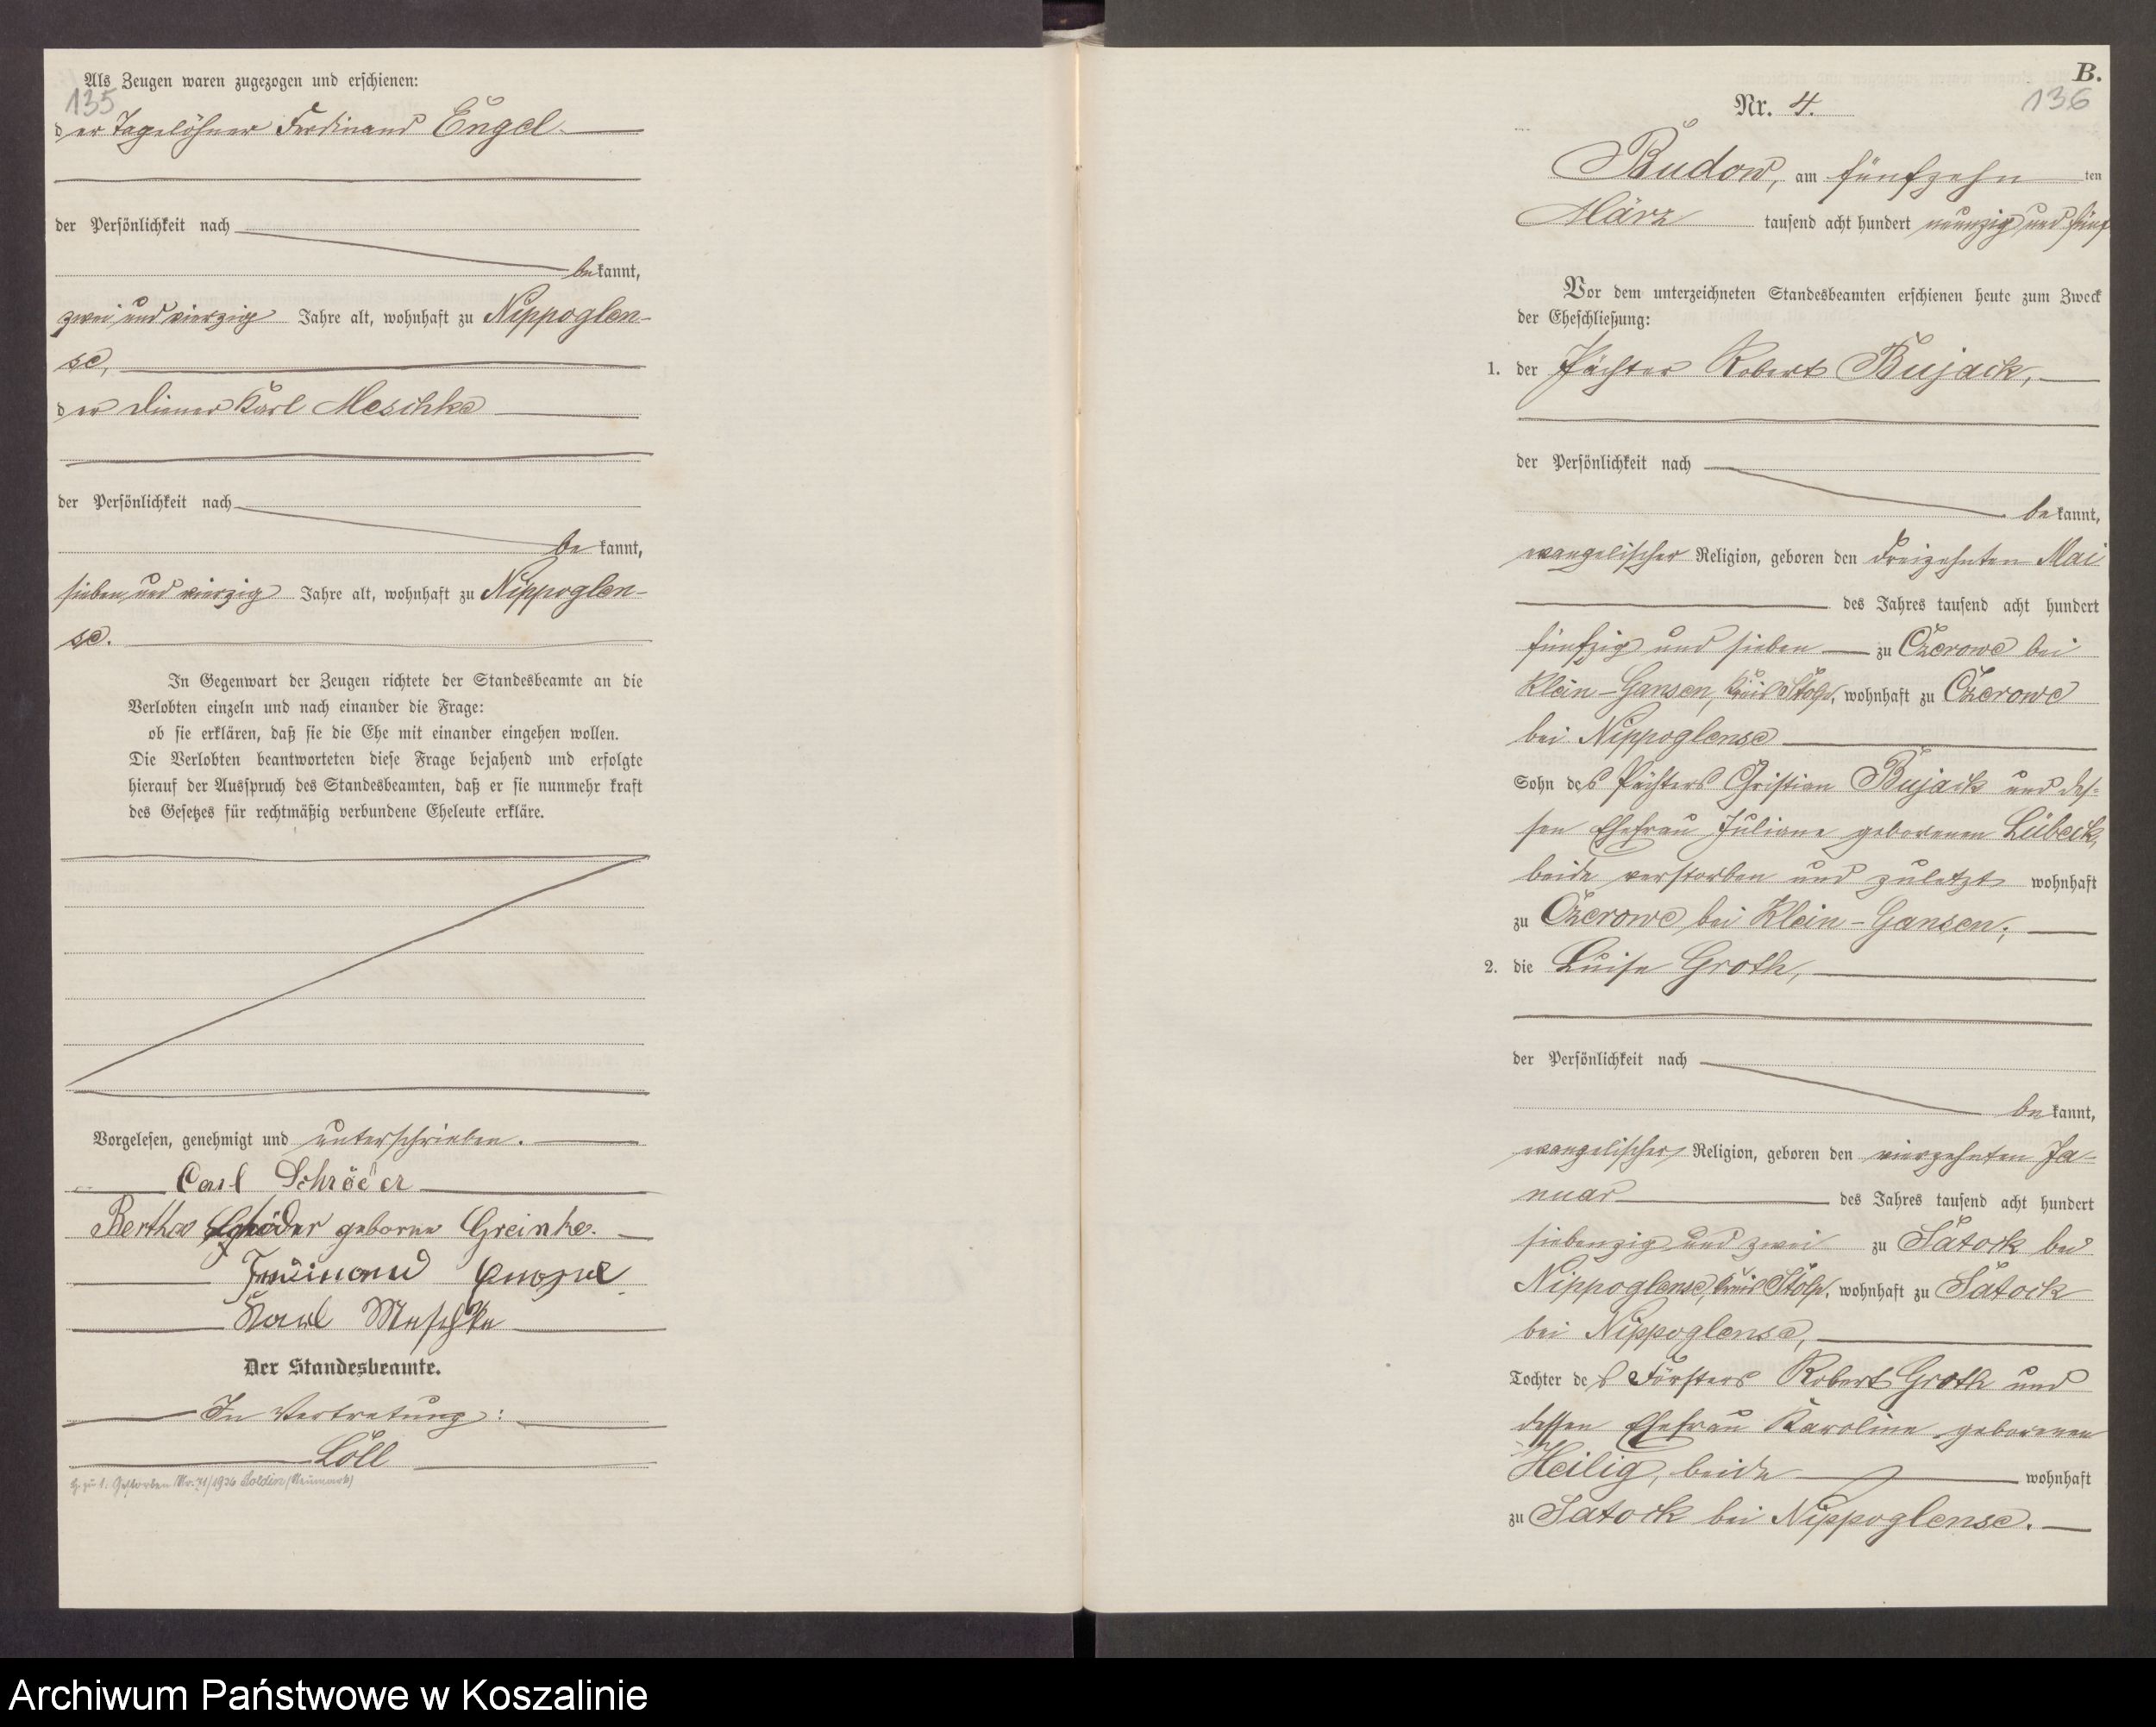 Als Zeugen waren zugezogen und erschienen:
135
der Tagelöhner Ferdinand Engel
der Persönlichkeit nach
bekannt,
zwei und vierzig Jahre alt, wohnhaft zu Nippoglen-
se,
der Diener Karl Meschke
der Persönlichkeit nach
bekannt,
sieben und vierzig Jahre alt, wohnhaft zu Nippoglen-
se.
In Gegenwart der Zeugen richtete der Standesbeamte an die
Verlobten einzeln und nach einander die Frage:
ob sie erklären, daß sie die Ehe mit einander eingehen wollen.
Die Verlobten beantworteten diese Frage bejahend und erfolgte
hierauf der Ausspruch des Standesbeamten, daß er sie nunmehr kraft
des Gesetzes für rechtmäßig verbundene Eheleute erkläre.
Vorgelesen, genehmigt und unterschrieben.
Carl Schröder
Bertha Schröder geborne Greinke.
Ferdinand Engel
Karl Meschke
Der Standesbeamte.
In Vertretung:
Löll
H. zu 1. Gestorben Nr. 31/1936 Soldin (Neumark)
B.
136
Nr. 4.
Budow, am fünfzehn ten
März tausend acht hundert neunzig und fünf
Vor dem unterzeichneten Standesbeamten erschienen heute zum Zweck
der Eheschließung:
1. der Pächter Robert Bujack,
der Persönlichkeit nach
bekannt,
evangelischer Religion, geboren den dreizehnten Mai
des Jahres tausend acht hundert
fünfzig und sieben zu Czerowe bei
Klein-Gansen, Kreis Stolp, wohnhaft zu Czerowe
bei Nippoglense
Sohn des Pächters Christian Bujack und des-
sen Ehefrau Juliane geborenen Lübeck,
beide verstorben und zuletzt wohnhaft
zu Czerowe bei Klein-Gansen;
2. die Luise Groth,
der Persönlichkeit nach
bekannt,
evangelischer Religion, geboren den vierzehnten Ja-
nuar des Jahres tausend acht hundert
siebenzig und zwei zu Satock bei
Nippoglense, Kreis Stolp, wohnhaft zu Satock
bei Nippoglense,
Tochter des Försters Robert Groth und
dessen Ehefrau Karoline geborenen
Heilig, beide wohnhaft
zu Satock bei Nippoglense.
Archiwum Państwowe w Koszalinie